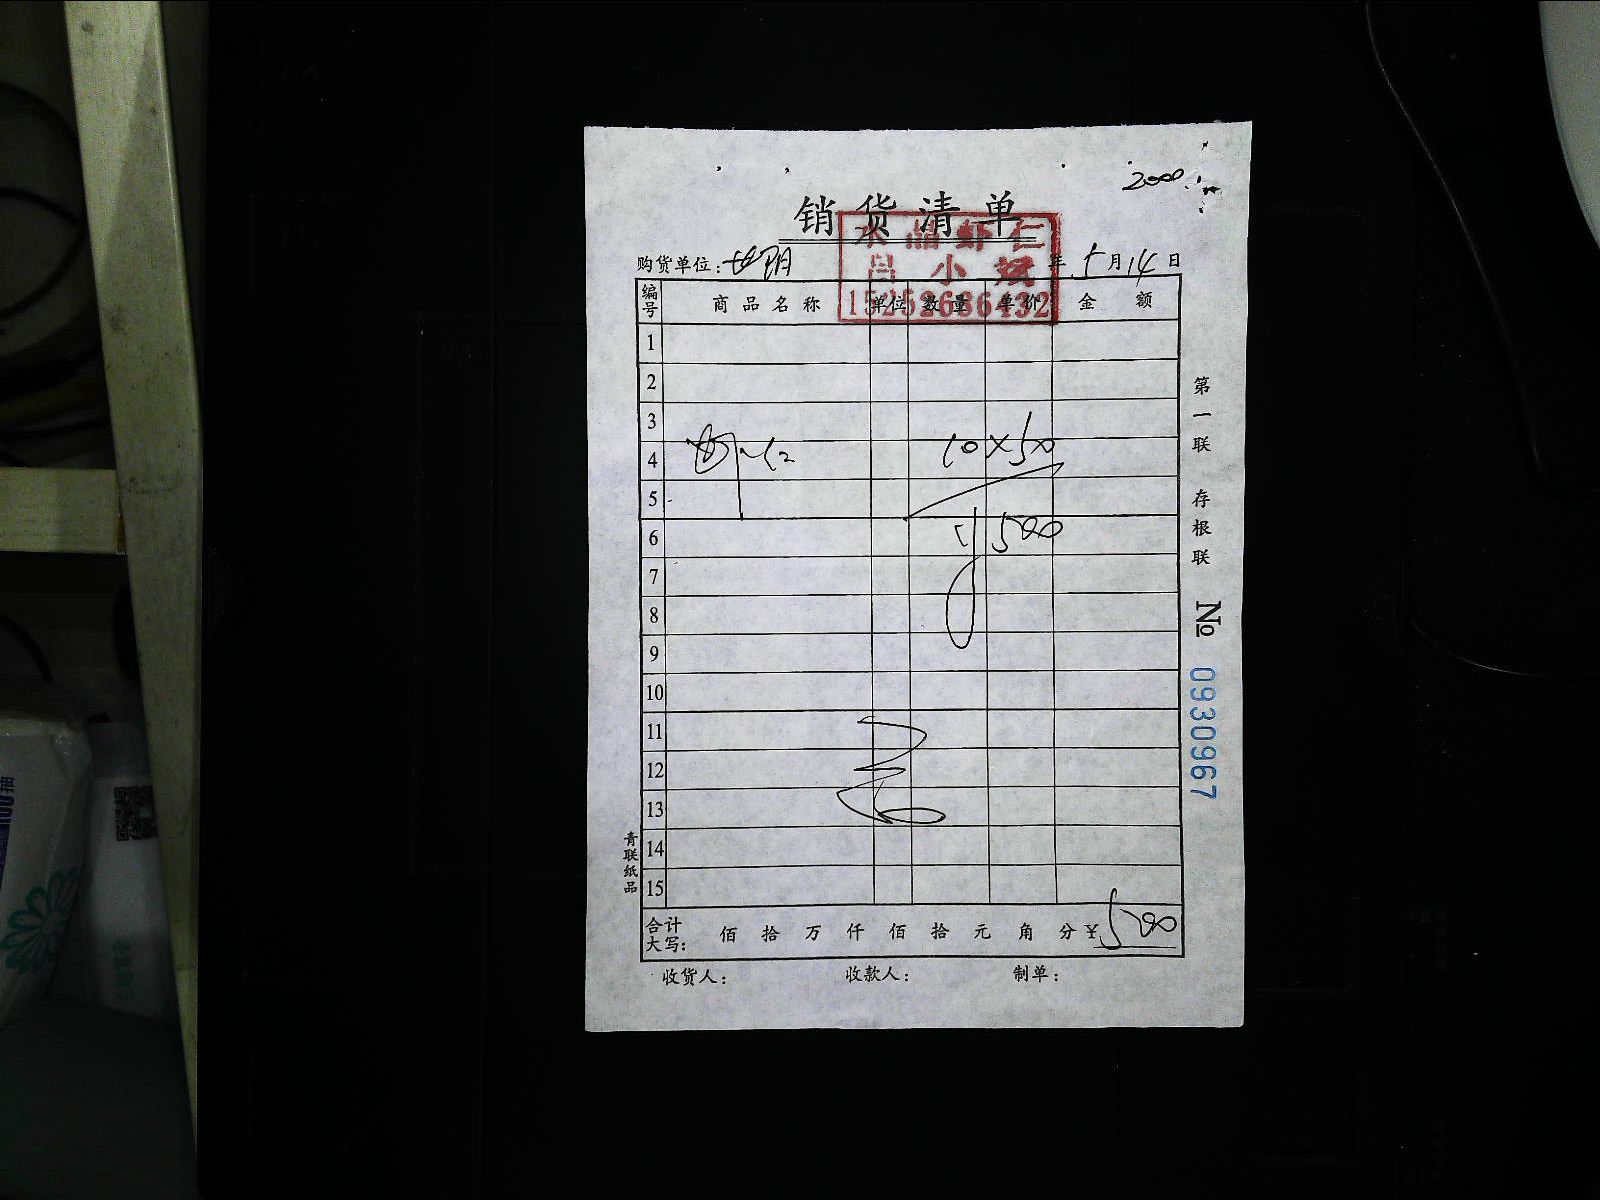 2000
销货清单
水晶虾仁
吕小斌
15252686432
购货单位: 年 5月14日
编号 商品名称 单位 数量 单价 金额
1
2
3
4 10×50
5
6 500
7
8
9
10
11
12
13
14
15
合计大写: 佰拾万仟佰拾元角分¥500
收货人: 收款人: 制单:
第一联 存根联
№ 0930967
青联纸品
100抽